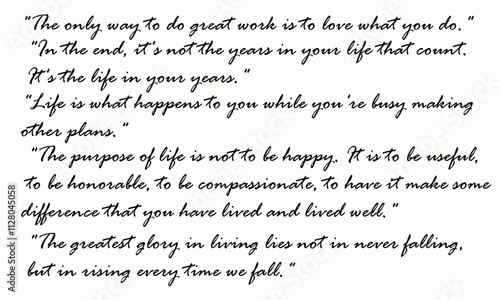 "The only way to do great work is to love what you do."
"In the end, it's not the years in your life that count.
It's the life in your years."
"Life is what happens to you while you're busy making
other plans."
"The purpose of life is not to be happy. It is to be useful,
to be honorable, to be compassionate, to have it make some
difference that you have lived and lived well."
"The greatest glory in living lies not in never falling,
but in rising every time we fall."
Adobe Stock | #1128045058